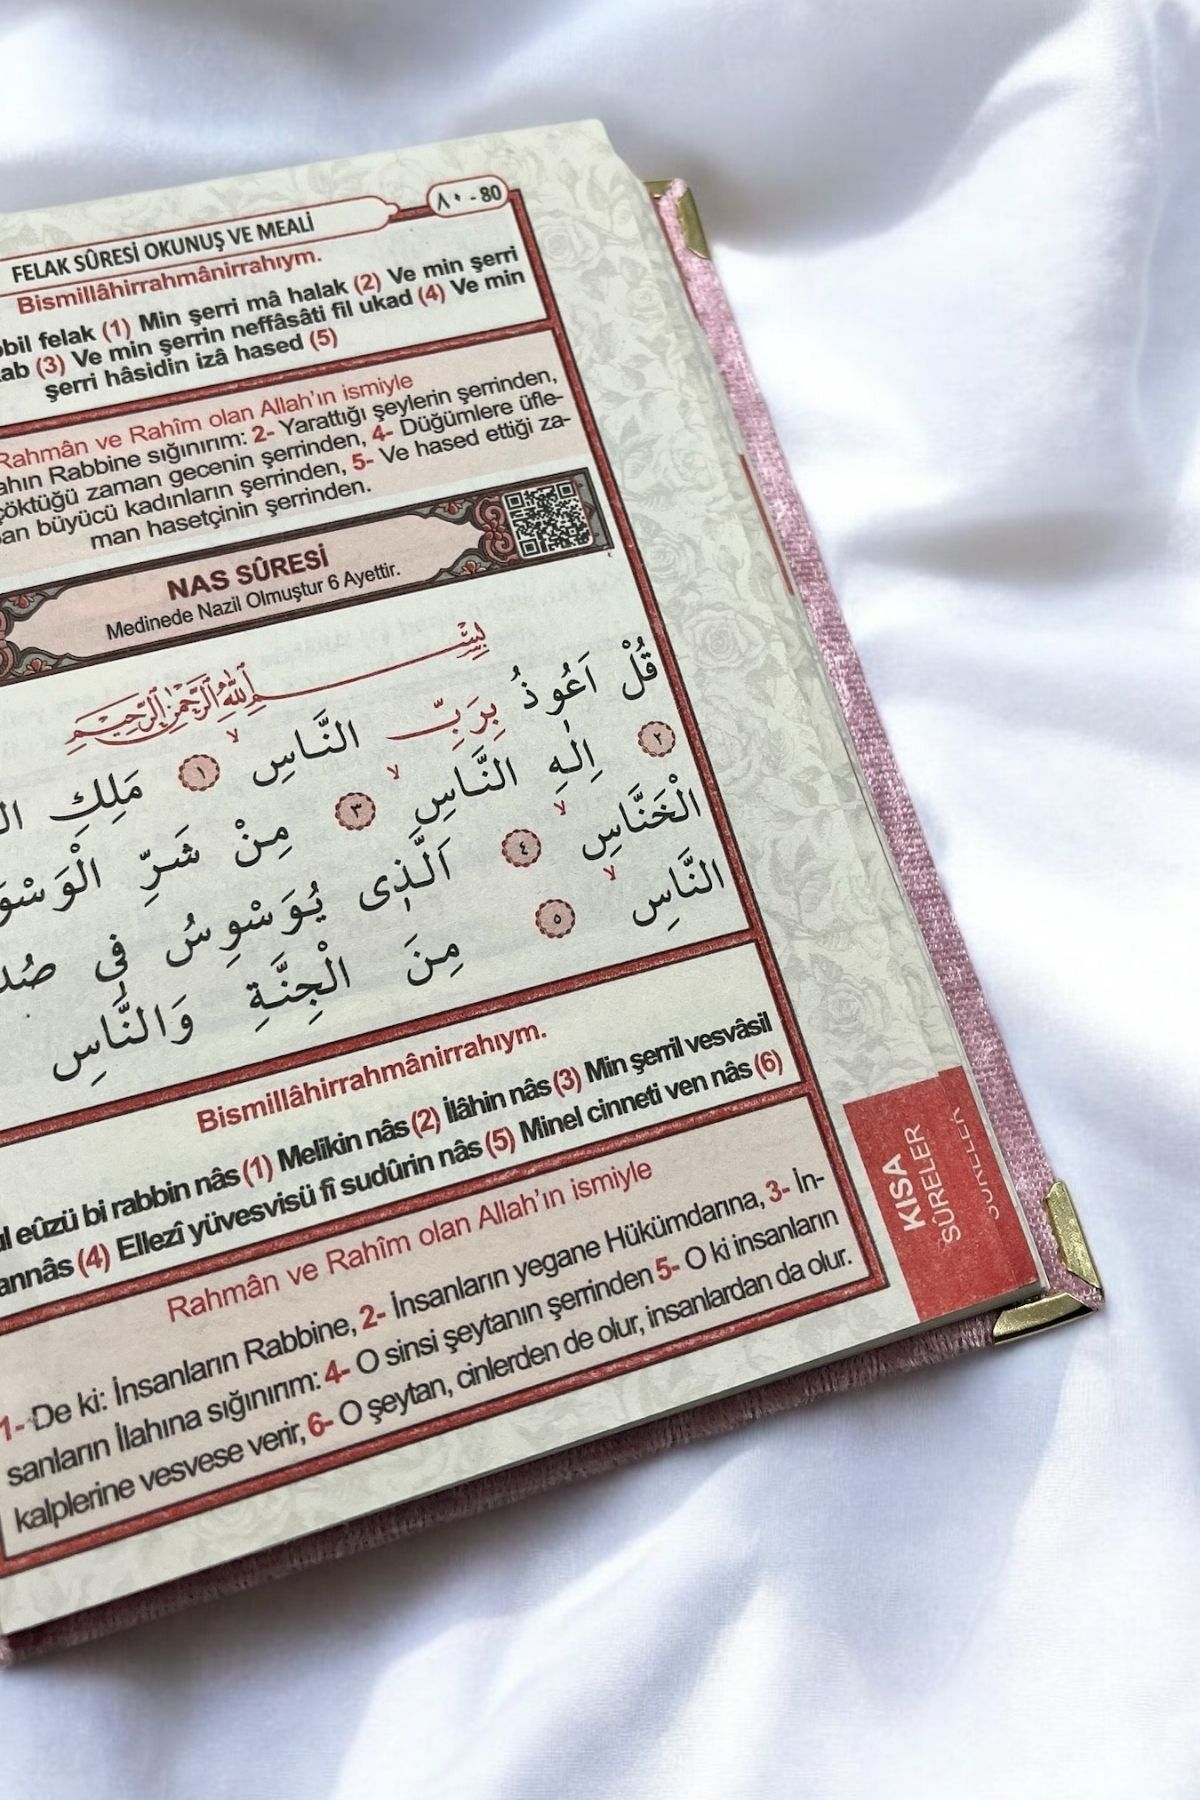 ٨٠ - 80
FELAK SÛRESİ OKUNUŞ VE MEALİ
Bismillâhirrahmânirrahıym.
felak (1) Min şerri mâ halak (2) Ve min şerri
(3) Ve min şerrin neffâsâti fil ukad (4) Ve min
şerri hâsidin izâ hased (5)
Rahmân ve Rahîm olan Allah'ın ismiyle
Rabbine sığınırım: 2- Yarattığı şeylerin şerrinden,
çöktüğü zaman gecenin şerrinden, 4- Düğümlere üfle-
büyücü kadınların şerrinden, 5- Ve hased ettiği za-
man hasetçinin şerrinden.
NAS SÛRESİ
Medinede Nazil Olmuştur 6 Ayettir.
بِسْــــمِ اللّٰهِ الرَّحْمٰنِ الرَّحِيمِ
قُلْ اَعُوذُ بِرَبِّ النَّاسِۙ ١ مَلِكِ
٢ اِلٰهِ النَّاسِۙ ٣ مِنْ شَرِّ
الْخَنَّاسِۙ ٤ اَلَّذٖى يُوَسْوِسُ فٖى
النَّاسِۙ ٥ مِنَ الْجِنَّةِ وَالنَّاسِ
Bismillâhirrahmânirrahıym.
eûzü bi rabbin nâs (1) Melikin nâs (2) İlâhin nâs (3) Min şerril vesvâsil
(4) Ellezî yüvesvisü fî sudûrin nâs (5) Minel cinneti ven nâs (6)
Rahmân ve Rahîm olan Allah'ın ismiyle
1- De ki: İnsanların Rabbine, 2- İnsanların yegane Hükümdarına, 3- İn-
sanların İlahına sığınırım: 4- O sinsi şeytanın şerrinden 5- O ki insanların
kalplerine vesvese verir, 6- O şeytan, cinlerden de olur, insanlardan da olur.
KISA
SÛRELER